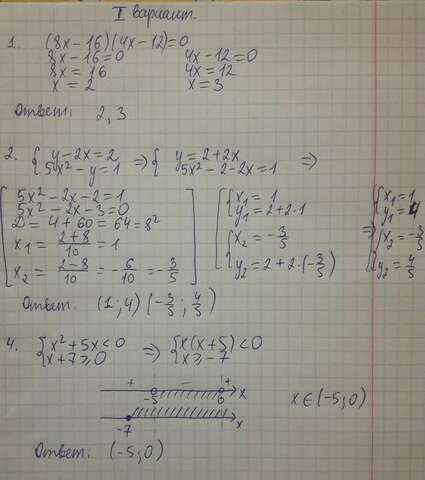 I вариант.
1. (8x-16)(4x-12)=0
8x-16=0 4x-12=0
8x=16 4x=12
x=2 x=3
Ответ: 2,3
2. { y-2x=2 ⇒ { y=2+2x ⇒
5x²-y=1 5x²-2-2x=1
5x²-2x-2=1
5x²-2x-3=0
D=4+60=64=8²
x₁ = (2+8)/10 = 1
x₂ = (2-8)/10 = -6/10 = -3/5
{ x₁=1
y₁=2+2·1
{ x₂=-3/5
y₂=2+2·(-3/5)
⇒
{ x₁=1
y₁=4
{ x₂=-3/5
y₂=4/5
Ответ: (1;4) (-3/5; 4/5)
4. { x²+5x<0 ⇒ { x(x+5)<0
x+7≥0 x≥-7
+ - +
-5 0 x x∈(-5;0)
-7 x
Ответ: (-5;0)